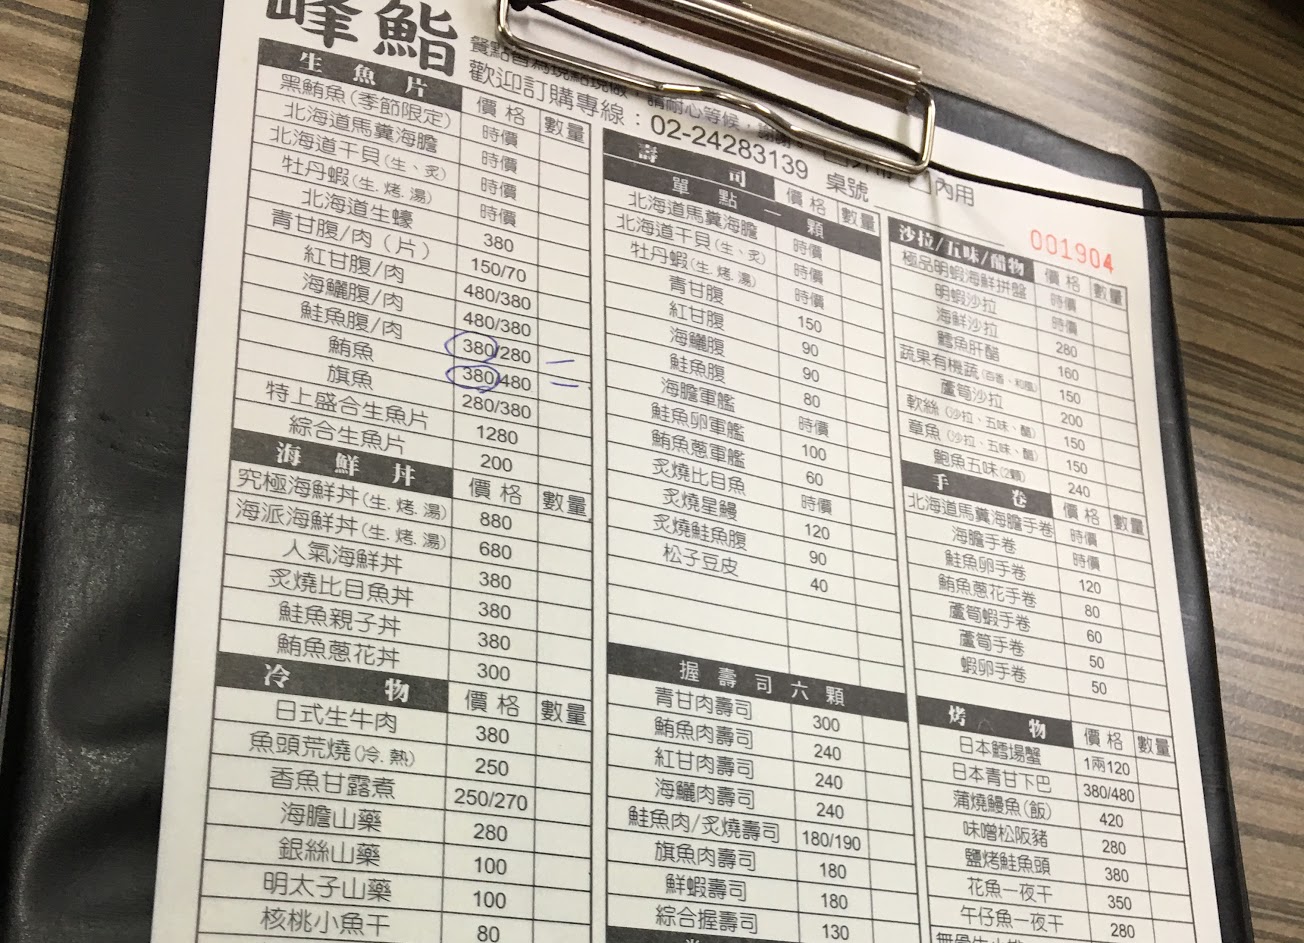 峰鮨
餐點皆為現點現做，請耐心等候，謝謝。
歡迎訂購專線：02-24283139
桌號 內用
001904
生魚片 價格 數量
黑鮪魚(季節限定) 時價
北海道馬糞海膽 時價
北海道干貝(生、炙) 時價
牡丹蝦(生.烤.湯) 時價
北海道生蠔 380
青甘腹/肉(片) 150/70
紅甘腹/肉 480/380
海鱺腹/肉 480/380
鮭魚腹/肉 380/280
鮪魚 380/480
旗魚 280/380
特上盛合生魚片 1280
綜合生魚片 200
海鮮丼 價格 數量
究極海鮮丼(生.烤.湯) 880
海派海鮮丼(生.烤.湯) 680
人氣海鮮丼 380
炙燒比目魚丼 380
鮭魚親子丼 380
鮪魚蔥花丼 300
冷物 價格 數量
日式生牛肉 380
魚頭荒燒(冷.熱) 250
香魚甘露煮 250/270
海膽山藥 280
銀絲山藥 100
明太子山藥 100
核桃小魚干 80
壽司 價格 數量
單點一顆
北海道馬糞海膽 時價
北海道干貝(生、炙) 時價
牡丹蝦(生.烤.湯) 時價
青甘腹 150
紅甘腹 90
海鱺腹 90
鮭魚腹 80
海膽軍艦 時價
鮭魚卵軍艦 100
鮪魚蔥軍艦 60
炙燒比目魚 時價
炙燒星鰻 120
炙燒鮭魚腹 90
松子豆皮 40
握壽司六顆
青甘肉壽司 300
鮪魚肉壽司 240
紅甘肉壽司 240
海鱺肉壽司 240
鮭魚肉/炙燒壽司 180/190
旗魚肉壽司 180
鮮蝦壽司 180
綜合握壽司 130
沙拉/五味/醋物 價格 數量
極品明蝦海鮮拼盤 時價
明蝦沙拉 時價
海鮮沙拉 280
鱈魚肝醋 160
蔬果有機蔬(百香、和風) 150
蘆筍沙拉 200
軟絲(沙拉、五味、醋) 150
章魚(沙拉、五味、醋) 150
鮑魚五味(2顆) 240
手卷 價格 數量
北海道馬糞海膽手卷 時價
海膽手卷 時價
鮭魚卵手卷 120
鮪魚蔥花手卷 80
蘆筍蝦手卷 60
蘆筍手卷 50
蝦卵手卷 50
烤物 價格 數量
日本鱈場蟹 1兩120
日本青甘下巴 380/480
蒲燒鰻魚(飯) 420
味噌松阪豬 280
鹽烤鮭魚頭 380
花魚一夜干 350
午仔魚一夜干 280